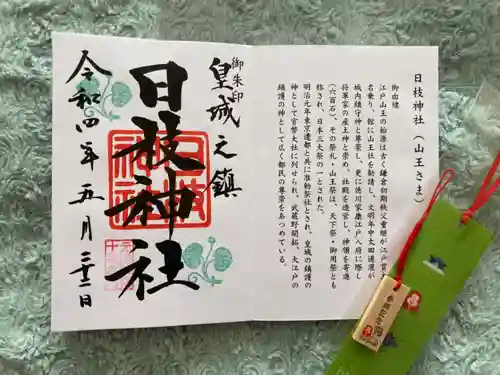 日枝神社(山王さま)
御由緒
江戸山王の始源は古く鎌倉初期秩父重継が江戸貫主を
名乗り、館に山王社を勧請し、文明年中太田道灌が
城内鎮守神と尊崇し、更に徳川家康江戸入府に際し
将軍家の産土神と崇め、社殿を造営し、神領を寄進
(六百石)、その祭礼・山王祭は、天下祭・御用祭と
称され、日本三大祭の一とされた。
明治元年東京遷都と共に准勅祭社とされ、皇城の鎮護の
神として官幣大社に列られ、武蔵野開拓、大江戸の
鎮護の神として広く都民の尊崇をあつめている。
御朱印
皇城之鎮
日枝神社
令和四年五月二十二日